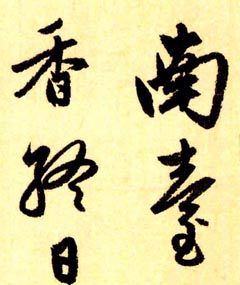 南臺
香終日